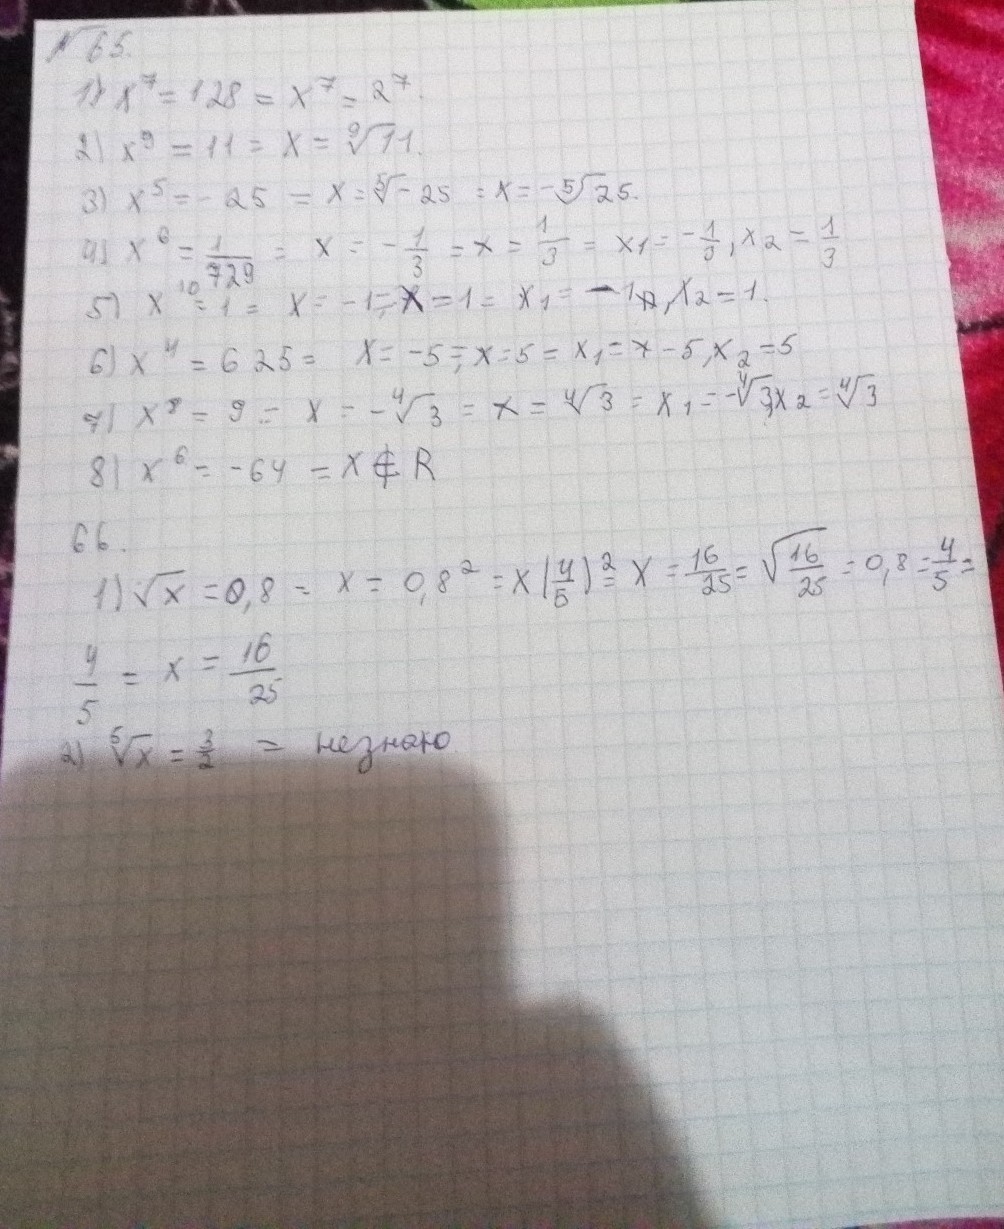 № 65.
1) x⁷ = 128 = x⁷ = 2⁷.
2) x⁹ = 11 = x = ⁹√11.
3) x⁵ = -25 = x = ⁵√-25 = x = -⁵√25.
4) x⁶ = 1/729 = x = -1/3 = x = 1/3 = x₁ = -1/3, x₂ = 1/3
5) x¹⁰ = 1 = x = -1 = x = 1 = x₁ = -1, x₂ = 1.
6) x⁴ = 625 = x = -5 = x = 5 = x₁ = -5, x₂ = 5
7) x⁸ = 9 = x = -⁴√3 = x = ⁴√3 = x₁ = -⁴√3, x₂ = ⁴√3
8) x⁶ = -64 = x ∉ R
66.
1) √x = 0,8 = x = 0,8² = x (4/5)² = x = 16/25 = √16/25 = 0,8 = 4/5 =
4/5 = x = 16/25
2) ⁵√x = 3/2 = незнаю